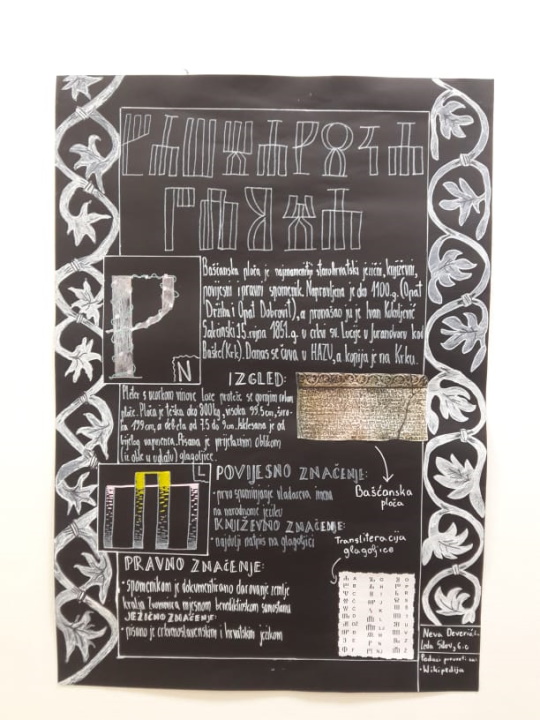 ⰁⰀⰛⰝⰀⰐⰔⰍⰀ
ⰒⰎⰑⰝⰀ
Bašćanska ploča je najznamenitiji starohrvatski jezični, književni,
povijesni i pravni spomenik. Napravljena je do 1100.g. (Opat
Držiha i Opat Dobrovit), a pronašao ju je Ivan Kukuljević
Sakcinski 15. rujna 1851.g. u crkvi sv. Lucije u Jurandvoru kod
Baške (Krk). Danas se čuva u HAZU, a kopija je na Krku.
N
IZGLED:
Pleter s uzorkom vinove loze proteže se gornjim rubom
ploče. Ploča je teška oko 800kg, visoka 99.5cm, širo-
ka 199cm, a debela od 7.5 do 9cm. Isklesana je od
bijelog vapnenca. Pisana je prijelaznim oblikom
(iz oble u uglatu) glagoljice.
Bašćanska
ploča
L
POVIJESNO ZNAČENJE:
- prvo spominjanje vladareva imena
na narodnome jeziku
KNJIŽEVNO ZNAČENJE:
- najdulji natpis na glagoljici
Transliteracija
glagoljice
PRAVNO ZNAČENJE:
• spomenikom je dokumentirano darovanje zemlje
kralja Zvonimira mjesnom benediktinskom samostanu
JEZIČNO ZNAČENJE:
• pisano je crkvenoslavenskim i hrvatskim jezikom
Neva
Podaci preuzeti sa:
• Wikipedija